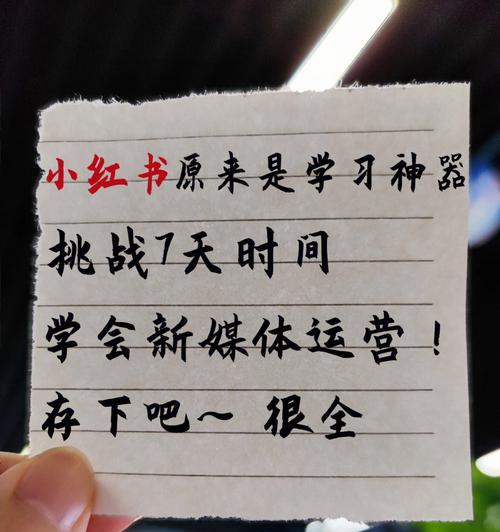 小红书原来是学习神器
挑战7天时间
学会新媒体运营！
存下吧～ 很全